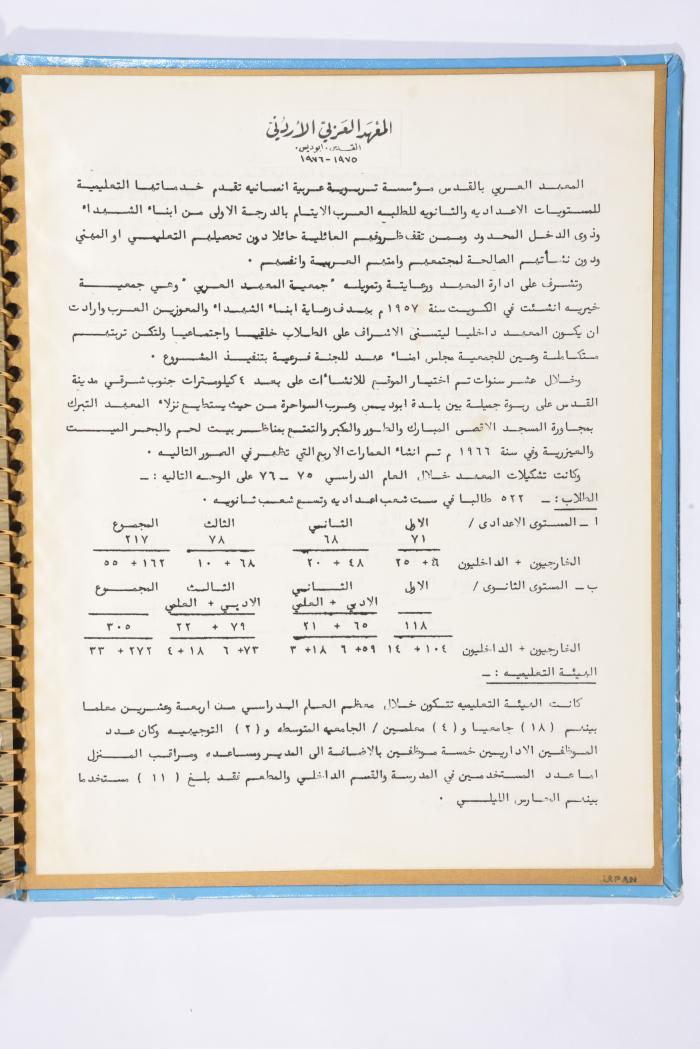 المعهد العربي الأردني
القدس - ابوديس
١٩٧٥-١٩٧٦
المعهد العربي بالقدس مؤسسة تربوية عربية انسانيه تقدم خدماتها التعليمية
للمستويات الاعداديه والثانويه للطلبه العرب الايتام بالدرجة الاولى من ابناء الشهداء
وذوى الدخل المحدود وممن تقف ظروفهم العائلية حائلا دون تحصيلهم التعليمي او المهني
ودون نشأتهم الصالحة لمجتمعهم وامتهم العربية وانفسهم .
وتشرف على ادارة المعهد ورعايتة وتمويله " جمعية المعهد العربي " وهي جمعية
خيريه انشئت في الكويت سنة ١٩٥٧ م بهدف رعاية ابناء الشهداء والمعوزين العرب وارادت
ان يكون المعهد داخليا ليتسنى الاشراف على الطلاب خلقيا واجتماعيا ولتكن تربتهم
متكاملة وعين للجمعية مجلس امناء عهد للجنة فرعية بتنفيذ المشروع .
وخلال عشر سنوات تم اختيار الموقع للانشاءات على بعد ٤ كيلومترات جنوب شرقي مدينة
القدس على ربوة جميلة بين بلدة ابوديس وعرب السواحرة من حيث يستطيع نزلاء المعهد التبرك
بمجاورة المسجد الاقصى المبارك والطور والمكبر والتمتع بمناظر بيت لحم والبحر الميت
والعيزرية وفي سنة ١٩٦٦ م تم انشاء العمارات الاربع التي تظهر في الصور التاليه .
وكانت تشكيلات المعهد خلال العام الدراسي ٧٥ – ٧٦ على الوجه التاليه : –
الطلاب : – ٥٢٢ طالبا في ست شعب اعداديه وتسع شعب ثانويه .
ا – المستوى الاعدادى / الاول الثاني الثالث المجموع
٧١ ٦٨ ٧٨ ٢١٧
الخارجيون + الداخليون ٤٦ + ٢٥ ٤٨ + ٢٠ ٦٨ + ١٠ ١٦٢ + ٥٥
ب – المستوى الثانوى / الاول الثاني الثالث المجموع
الادبي + العلمي الادبي + العلمي
١١٨ ٦٥ + ٢١ ٧٩ + ٢٢ ٣٠٥
الخارجيون + الداخليون ١٠٤ + ١٤ ٥٩ + ٦ ١٨ + ٣ ٧٣ + ٦ ١٨ + ٤ ٢٧٢ + ٣٣
الهيئة التعليميه : –
كانت الهيئة التعليميه تتكون خلال معظم العام الدراسي من اربعة وعشرين معلما
بينهم ( ١٨ ) جامعيا و ( ٤ ) معلمين / الجامعيه المتوسطه و ( ٢ ) التوجيهيه وكان عدد
الموظفين الاداريين خمسة موظفين بالاضافة الى المدير ومساعده ومراقب المنزل
اما عدد المستخدمين في المدرسة والقسم الداخلي والمطعم فقد بلغ ( ١١ ) مستخدما
بينهم الحارس الليلي .
JAPAN